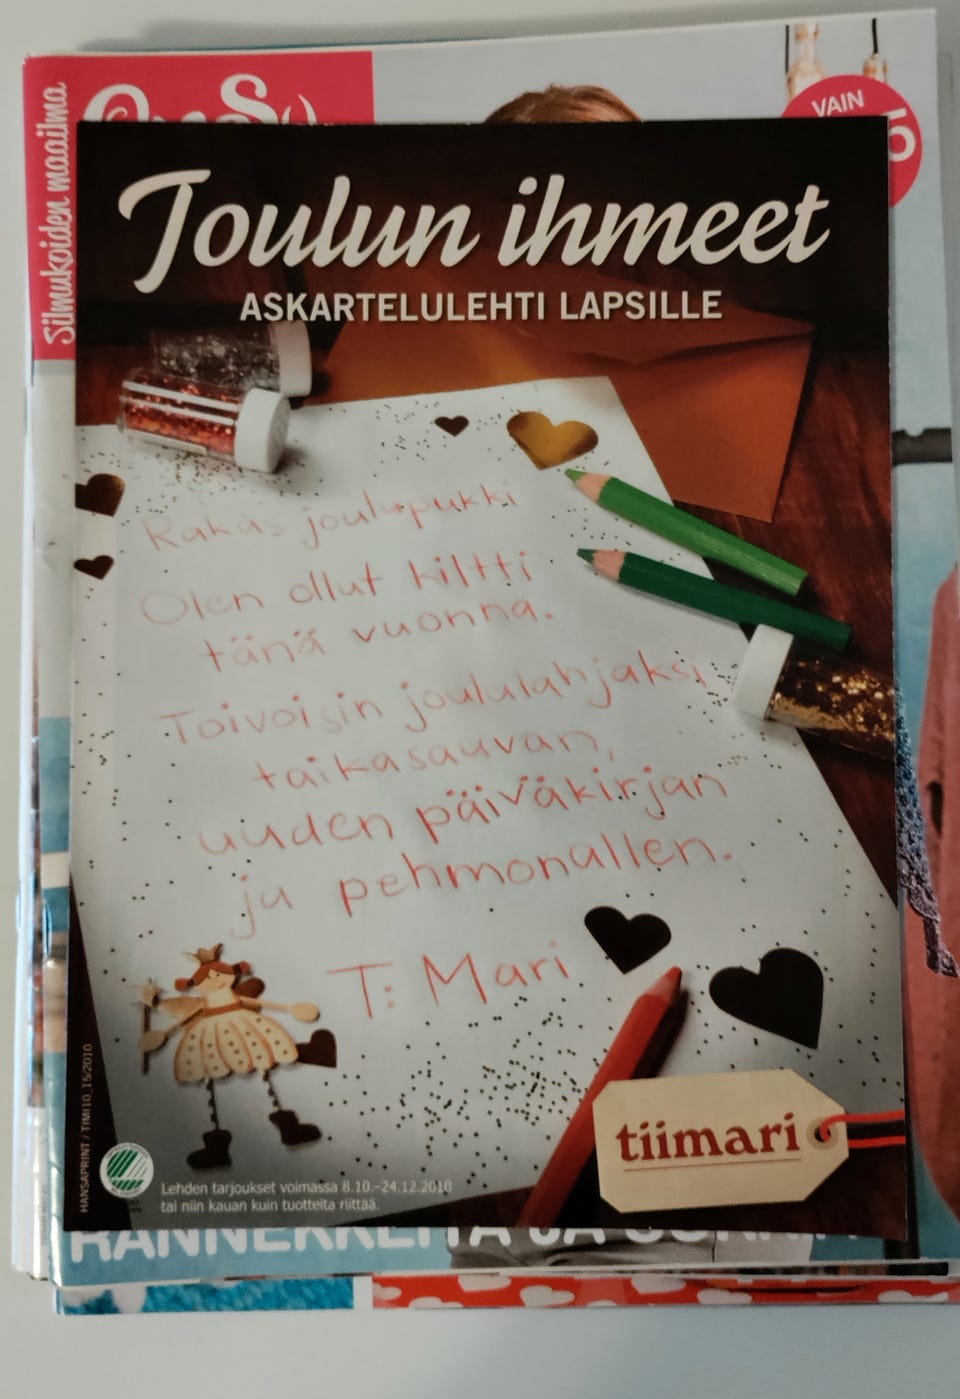 Silmukoiden maailma
VAIN
Joulun ihmeet
ASKARTELULEHTI LAPSILLE
Rakas joulupukki
Olen ollut kiltti
tänä vuonna.
Toivoisin joululahjaksi
taikasauvan,
uuden päiväkirjan
ja pehmonallen.
T: Mari
tiimari
HANSAPRINT / TIMI10_15/2010
Lehden tarjoukset voimassa 8.10.–24.12.2010
tai niin kauan kuin tuotteita riittää.
RANNEKKEITA JA